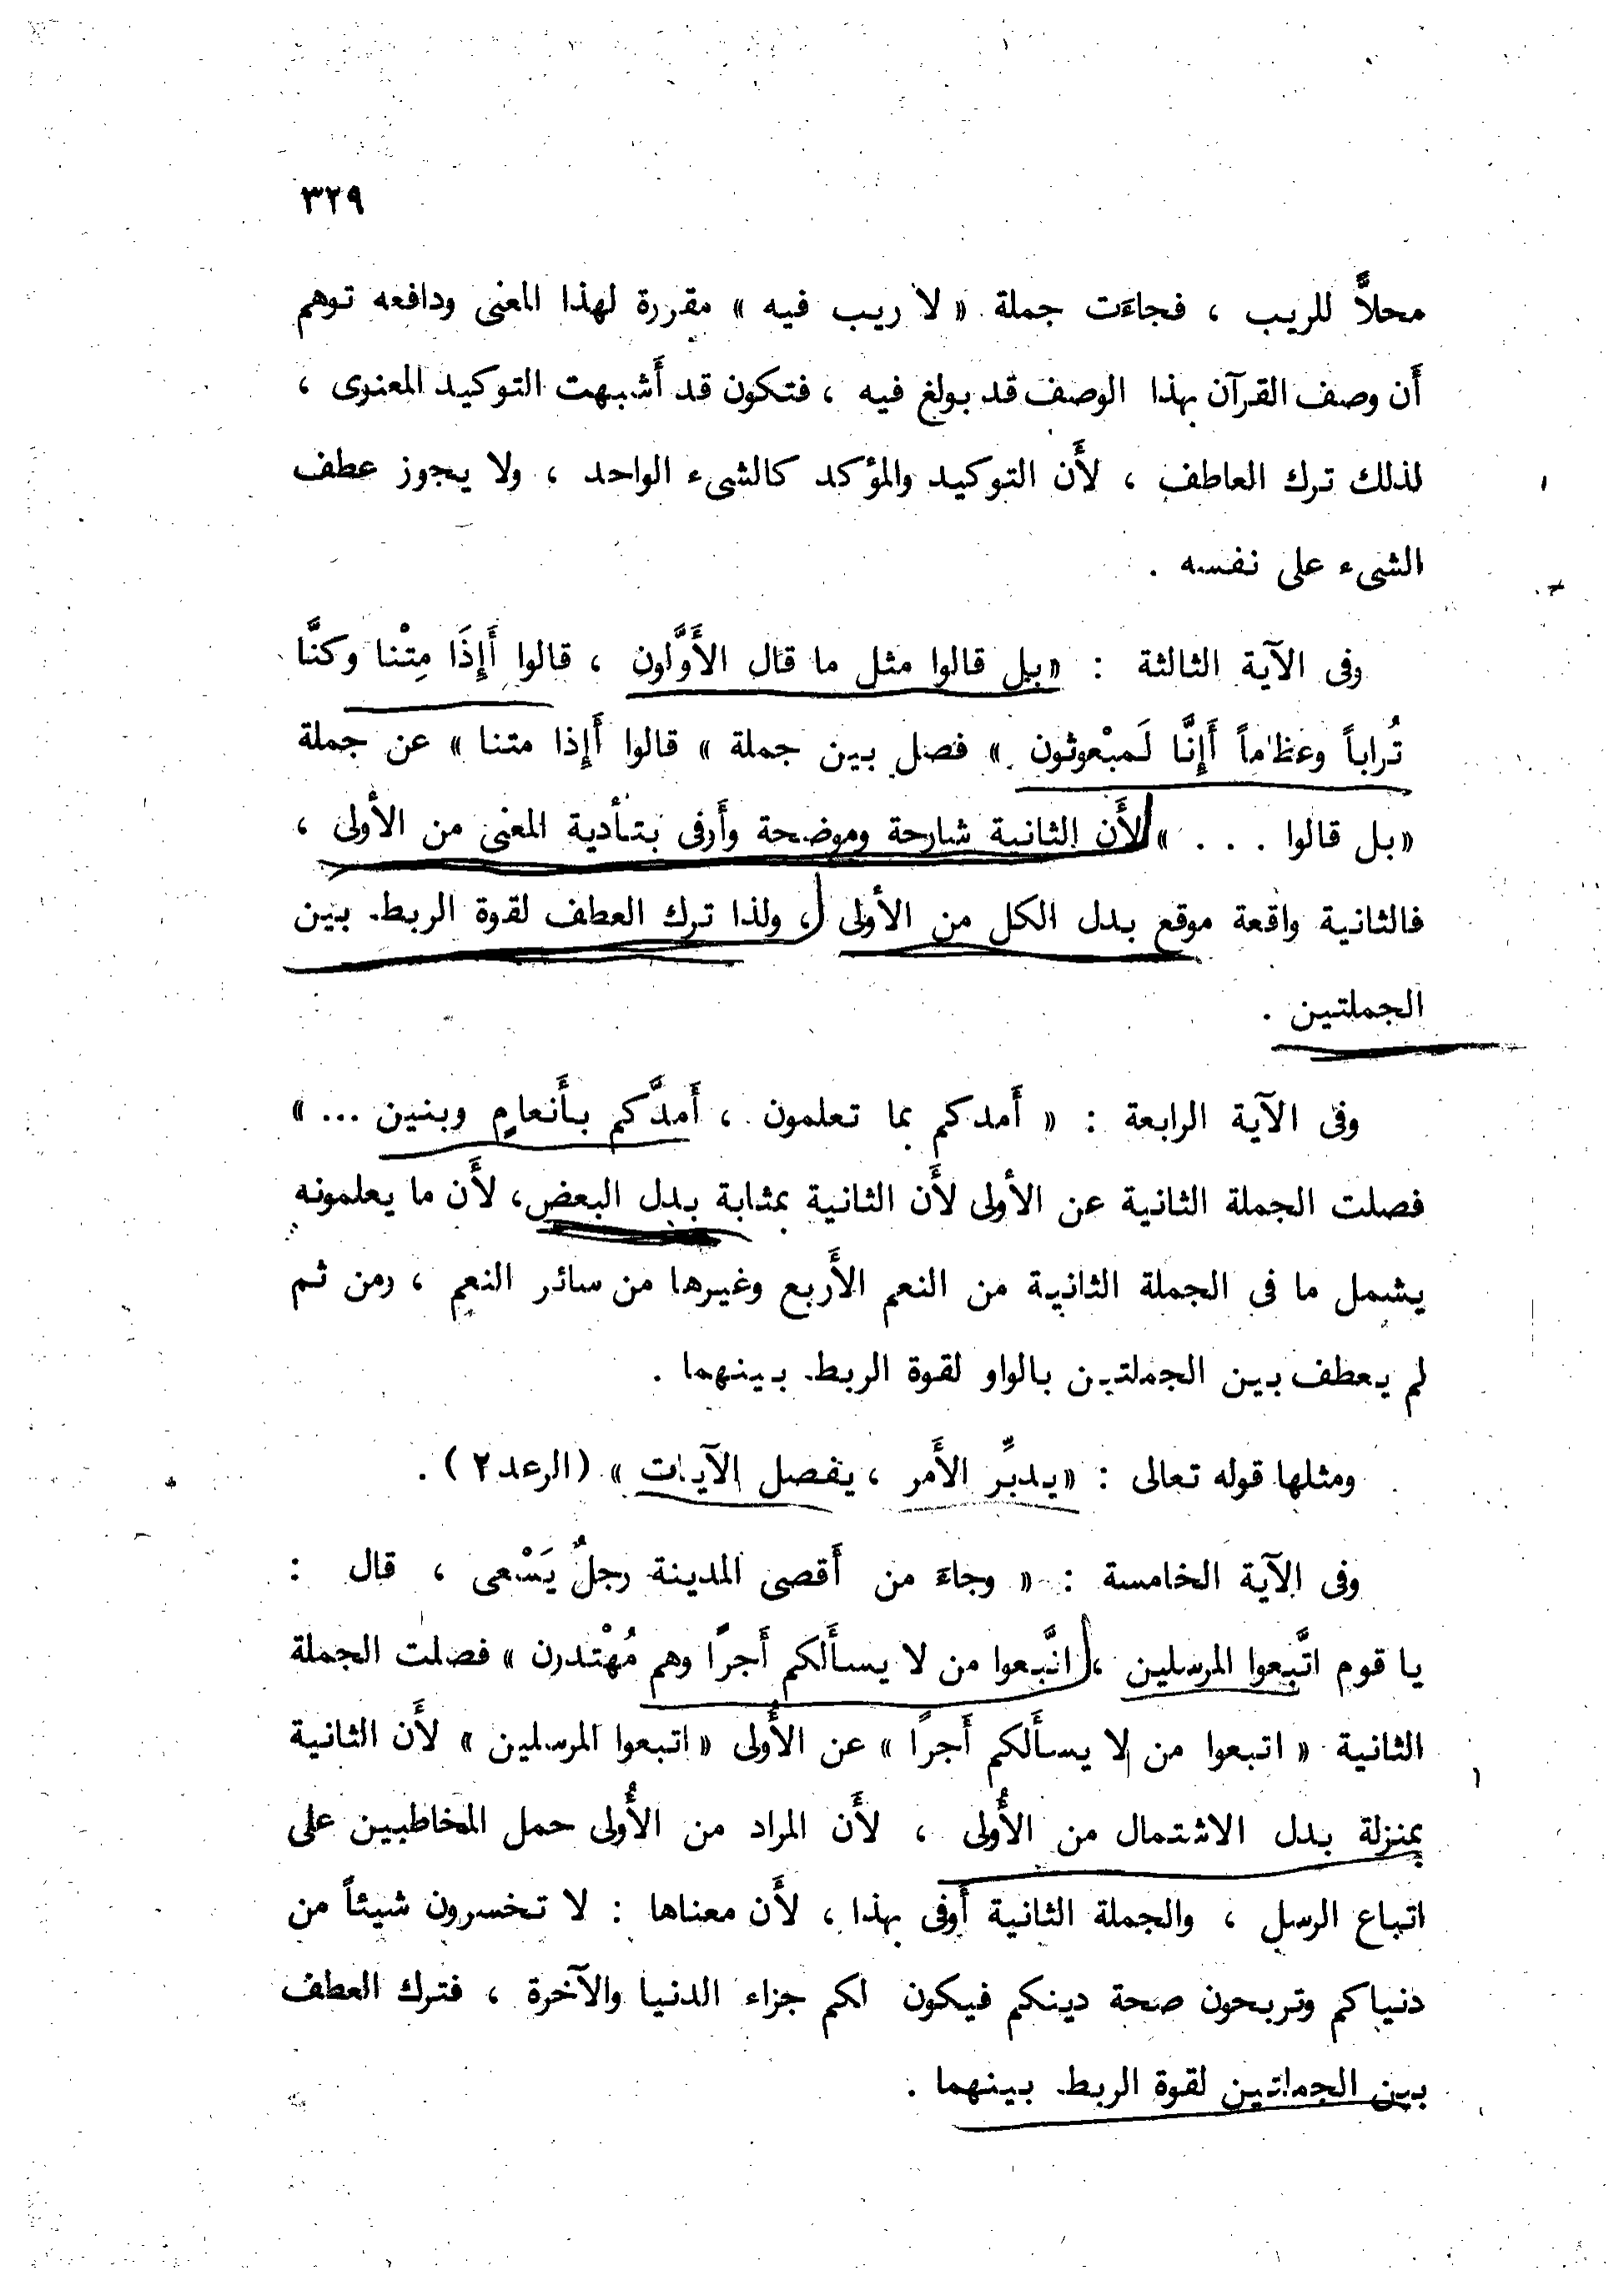 ٣٢٩
محلاًّ للريب ، فجاءَت جملة « لا ريب فيه » مقررة لهذا المعنى ودافعه توهم
أَن وصف القرآن بهذا الوصف قد بولغ فيه ، فتكون قد أَشبهت التوكيد المعنوى ،
لذلك ترك العاطف ، لأَن التوكيد والمؤكد كالشىء الواحد ، ولا يجوز عطف
الشىء على نفسه .
وفى الآية الثالثة : «بل قالوا مثل ما قال الأَوَّلون ، قالوا أَإِذَا مِتْنا وكنَّا
تُراباً وعظاماً أَإِنَّا لَمبْعوثون » فصل بين جملة » قالوا أَإِذا متنا » عن جملة
«بل قالوا . . . » لأَن الثانية شارحة وموضحة وأَوفى بتأدية المعنى من الأُولى ،
فالثانية واقعة موقع بدل الكل من الأُولى ، ولذا ترك العطف لقوة الربط بين
الجملتين .
وفى الآية الرابعة : « أَمدكم بما تعلمون ، أَمدَّكم بأَنعام وبنين ... »
فصلت الجملة الثانية عن الأُولى لأَن الثانية بمثابة بدل البعض، لأَن ما يعلمونه
يشمل ما فى الجملة الثانية من النعم الأَربع وغيرها من سائر النعم ، ومن ثم
لم يعطف بين الجملتين بالواو لقوة الربط بينهما .
ومثلها قوله تعالى : «يدبِّر الأَمر ، يفصل الآيات » (الرعد ٢ ) .
وفى الآية الخامسة : « وجاءَ من أَقصى المدينة رجلٌ يَسْعى ، قال :
يا قوم اتَّبعوا المرسلين ، اتَّبعوا من لا يسأَلكم أَجرًا وهم مُهْتدون » فصلت الجملة
الثانية « اتبعوا من لا يسأَلكم أَجرًا » عن الأُولى « اتبعوا المرسلين » لأَن الثانية
بمنزلة بدل الاشتمال من الأُولى ، لأَن المراد من الأُولى حمل المخاطبين على
اتباع الرسل ، والجملة الثانية أَوفى بهذا ، لأَن معناها : لا تخسرون شيئاً من
دنياكم وتربحون صحة دينكم فيكون لكم جزاء الدنيا والآخرة ، فترك العطف
بين الجملتين لقوة الربط بينهما .